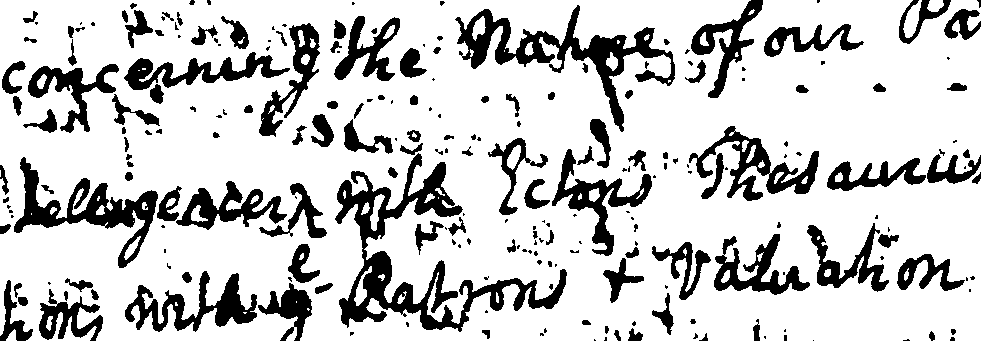 concerning the Nature of our Pa
telligencer with Ectons Thesaurus
tions with ye Patrons + Valuation